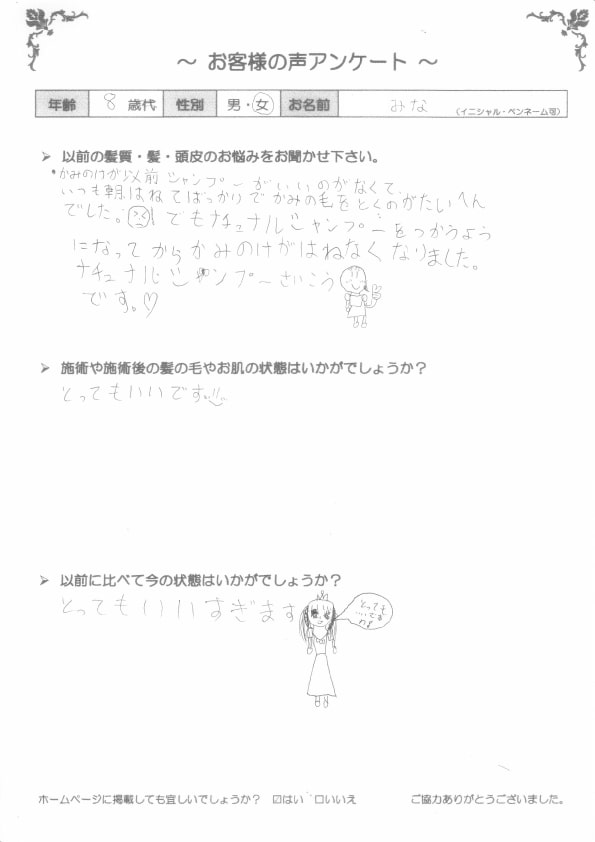 ～ お客様の声アンケート ～
年齢 8 歳代 性別 男・女 お名前 みな (イニシャル・ペンネーム可)
➢ 以前の髪質・髪・頭皮のお悩みをお聞かせ下さい。
・かみのけが以前シャンプーがいいのがなくて、
いつも朝はねてばっかりでかみの毛をとくのがたいへん
でした。でもナチュナルシャンプーをつかうよう
になってからかみのけがはねなくなりました。
ナチュナルシャンプーさいこう
です。♡
➢ 施術や施術後の髪の毛やお肌の状態はいかがでしょうか？
とってもいいです。
➢ 以前に比べて今の状態はいかがでしょうか？
とってもいいすぎます
とっても
いいです
ホームページに掲載しても宜しいでしょうか？ ☑はい ☐いいえ ご協力ありがとうございました。